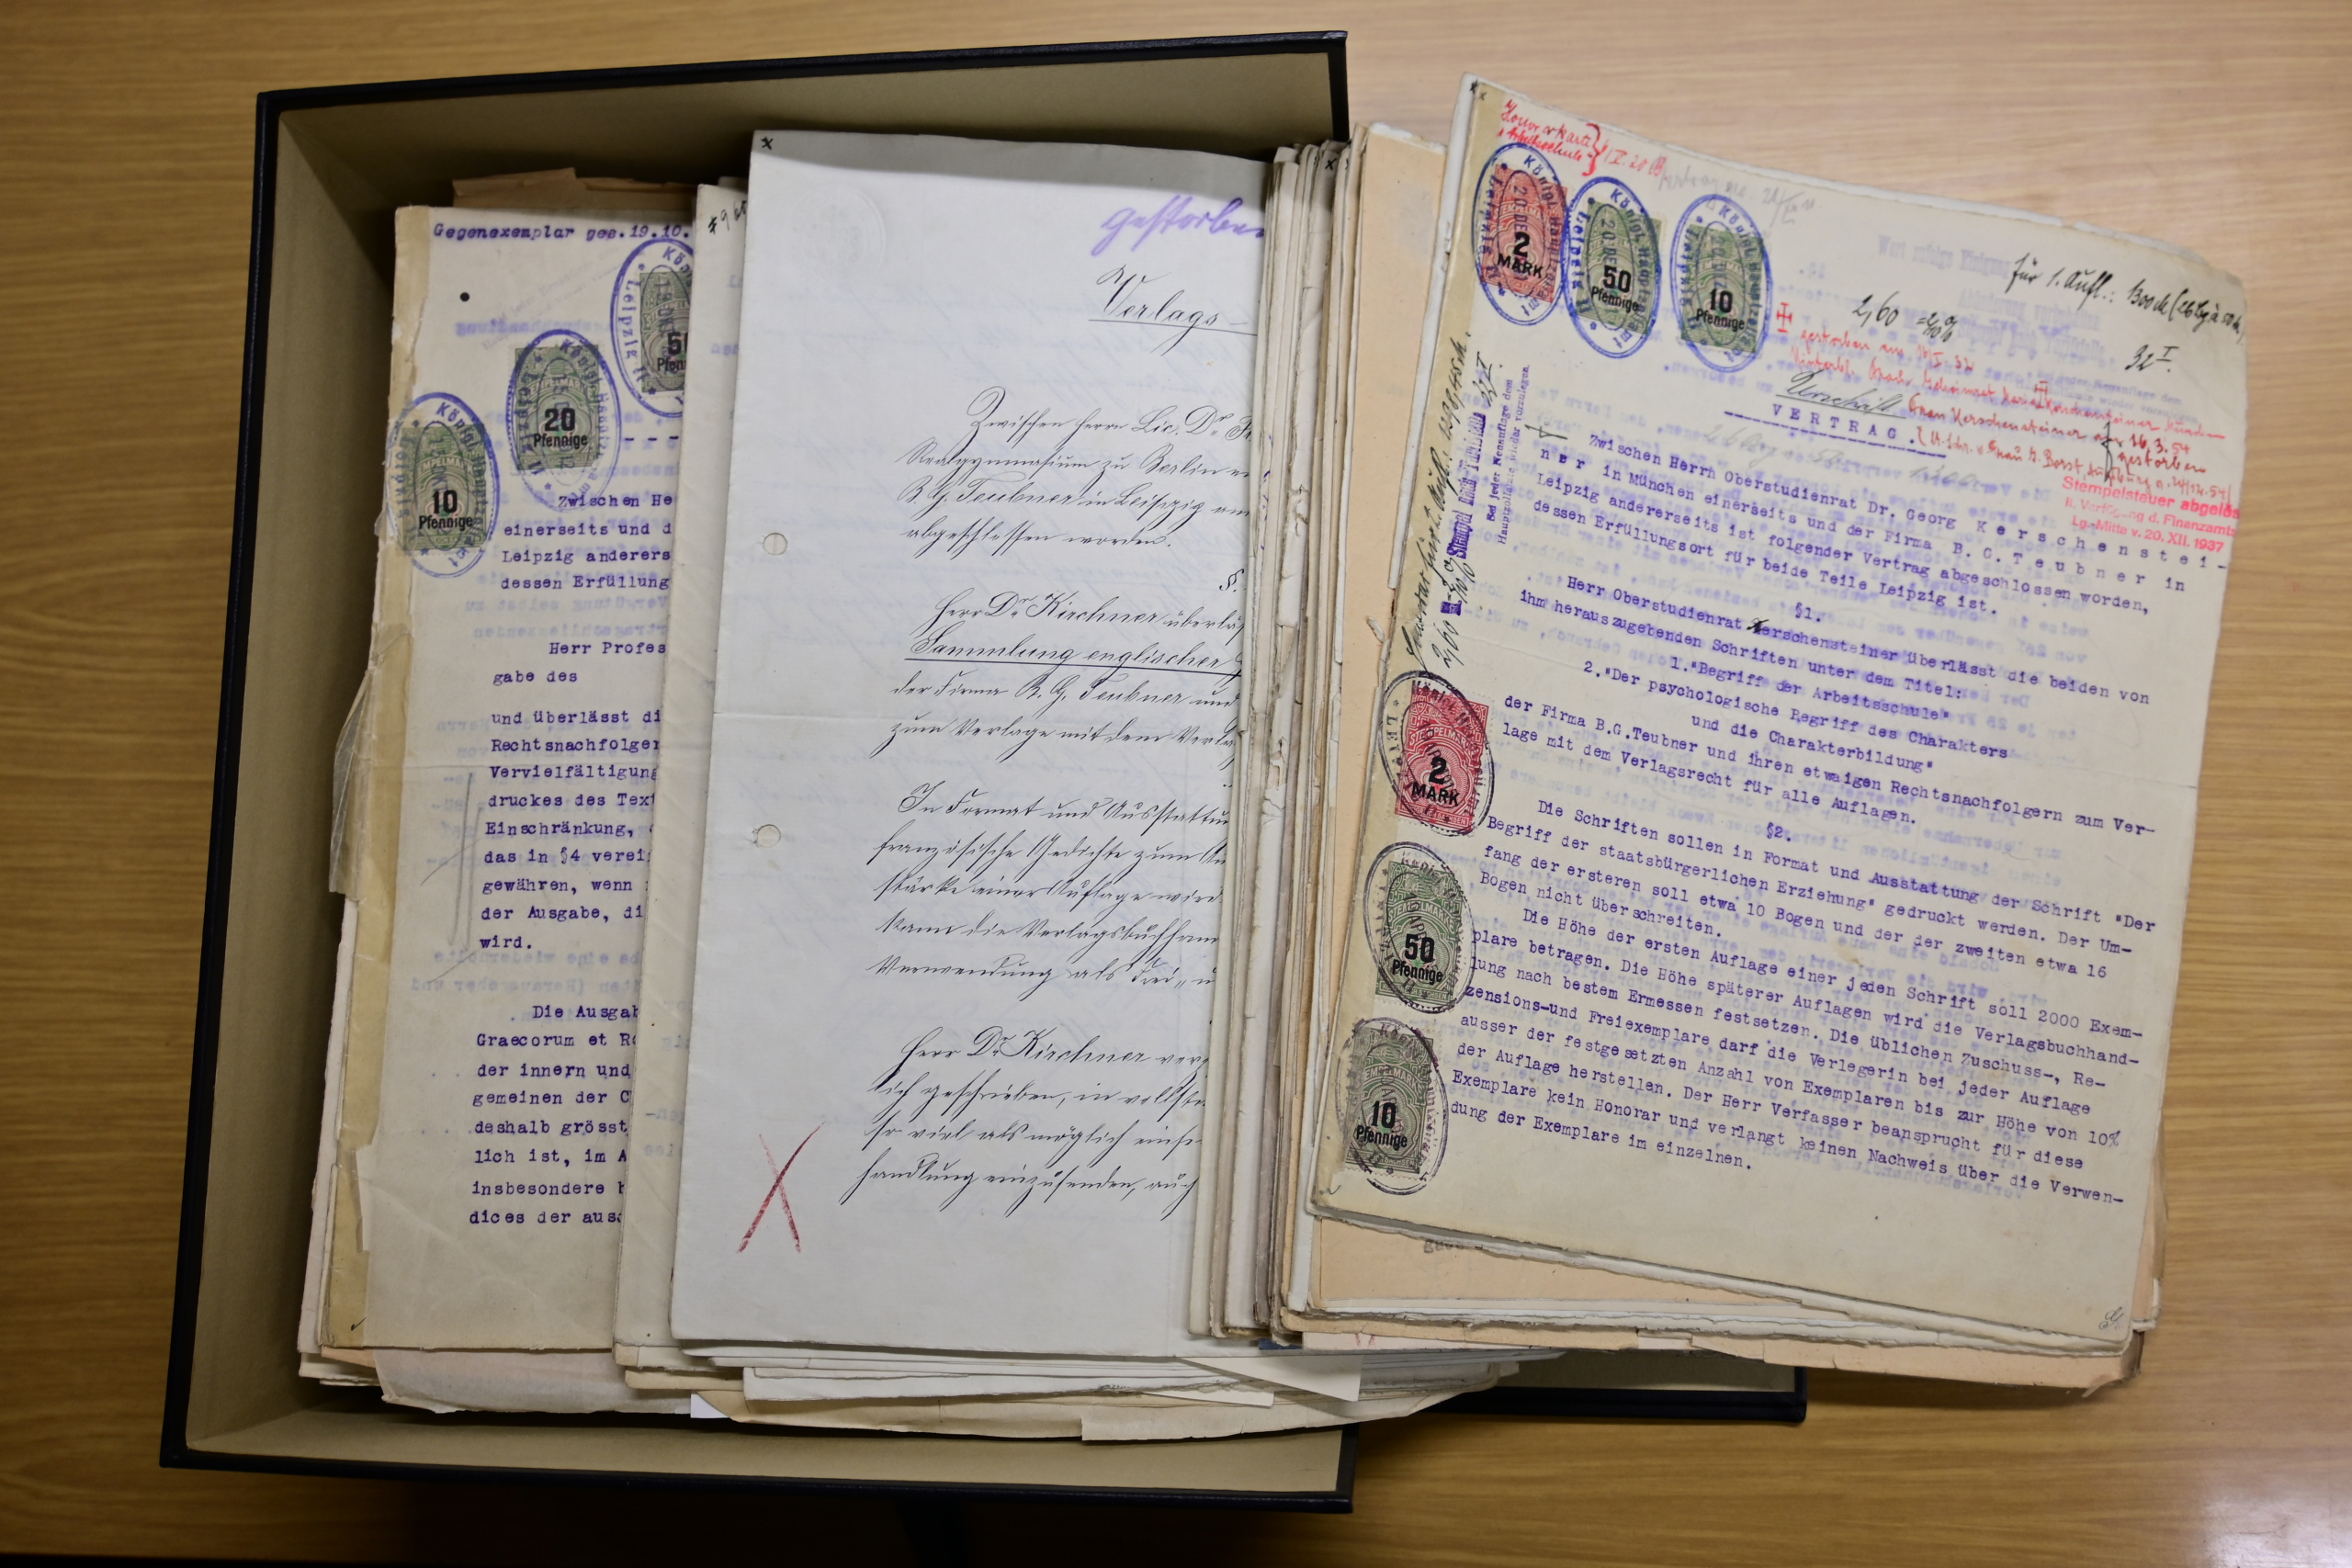 Gegenexemplar ges.19.10.
10
Pfennige
20
Pfennige
Pfen
Zwischen He
einerseits und d
Leipzig anderers
dessen Erfüllung
Herr Profes
gabe des
und überlässt di
Rechtsnachfolger
Vervielfältigung
druckes des Text
Einschränkung,
das in §4 verei
gewähren, wenn
der Ausgabe, di
wird.
Die Ausgab
Graecorum et R
der innern und
gemeinen der C
deshalb grösst
lich ist, im A
insbesondere b
dices der aus
gestorben
Verlags-
Zwischen Herrn Lic. Dr.
Realgymnasium zu Berlin
B. G. Teubner in Leipzig
abgeschlossen worden.
§.
Herr Dr. Kirchner überläs
Sammlung englischer
der Firma B. G. Teubner und
zum Verlage mit dem Verla
In Format und Ausstattun
französische Gedichte zum
stärke einer Auflage wird
kann die Verlagsbuchhan
Verwendung als Frei-
Herr Dr. Kirchner ver
lich geschrieben, in vollst
so viel als möglich
handlung einzusenden, auch
2
MARK
50
Pfennige
10
Pfennige
für 1. Aufl.: 1300 M
2,60
32 I.
gestorben am
Urschrift
VERTRAG.
Frau Kerschensteiner 16.3.54
gestorben
Stempelsteuer abgelös
lt. Verfügung d. Finanzamts
Lg.-Mitte v. 20. XII. 1937
Bei jeder Neuauflage dem
Hauptzollamt wieder vorzulegen.
Zwischen Herrn Oberstudienrat Dr. Georg Kerschenstei-
ner in München einerseits und der Firma B. G. Teubner in
Leipzig andererseits ist folgender Vertrag abgeschlossen worden,
dessen Erfüllungsort für beide Teile Leipzig ist.
§1.
Herr Oberstudienrat Kerschensteiner überlässt die beiden von
ihm herauszugebenden Schriften unter dem Titel:
1."Begriff der Arbeitsschule"
2."Der psychologische Begriff des Charakters
und die Charakterbildung"
der Firma B.G.Teubner und ihren etwaigen Rechtsnachfolgern zum Ver-
lage mit dem Verlagsrecht für alle Auflagen.
§2.
Die Schriften sollen in Format und Ausstattung der Schrift "Der
Begriff der staatsbürgerlichen Erziehung" gedruckt werden. Der Um-
fang der ersteren soll etwa 10 Bogen und der der zweiten etwa 16
Bogen nicht überschreiten.
Die Höhe der ersten Auflage einer jeden Schrift soll 2000 Exem-
plare betragen. Die Höhe späterer Auflagen wird die Verlagsbuchhand-
lung nach bestem Ermessen festsetzen. Die üblichen Zuschuss-, Re-
zensions-und Freiexemplare darf die Verlegerin bei jeder Auflage
ausser der festgesetzten Anzahl von Exemplaren bis zur Höhe von 10%
der Auflage herstellen. Der Herr Verfasser beansprucht für diese
Exemplare kein Honorar und verlangt keinen Nachweis über die Verwen-
dung der Exemplare im einzelnen.
2
MARK
50
Pfennige
10
Pfennige